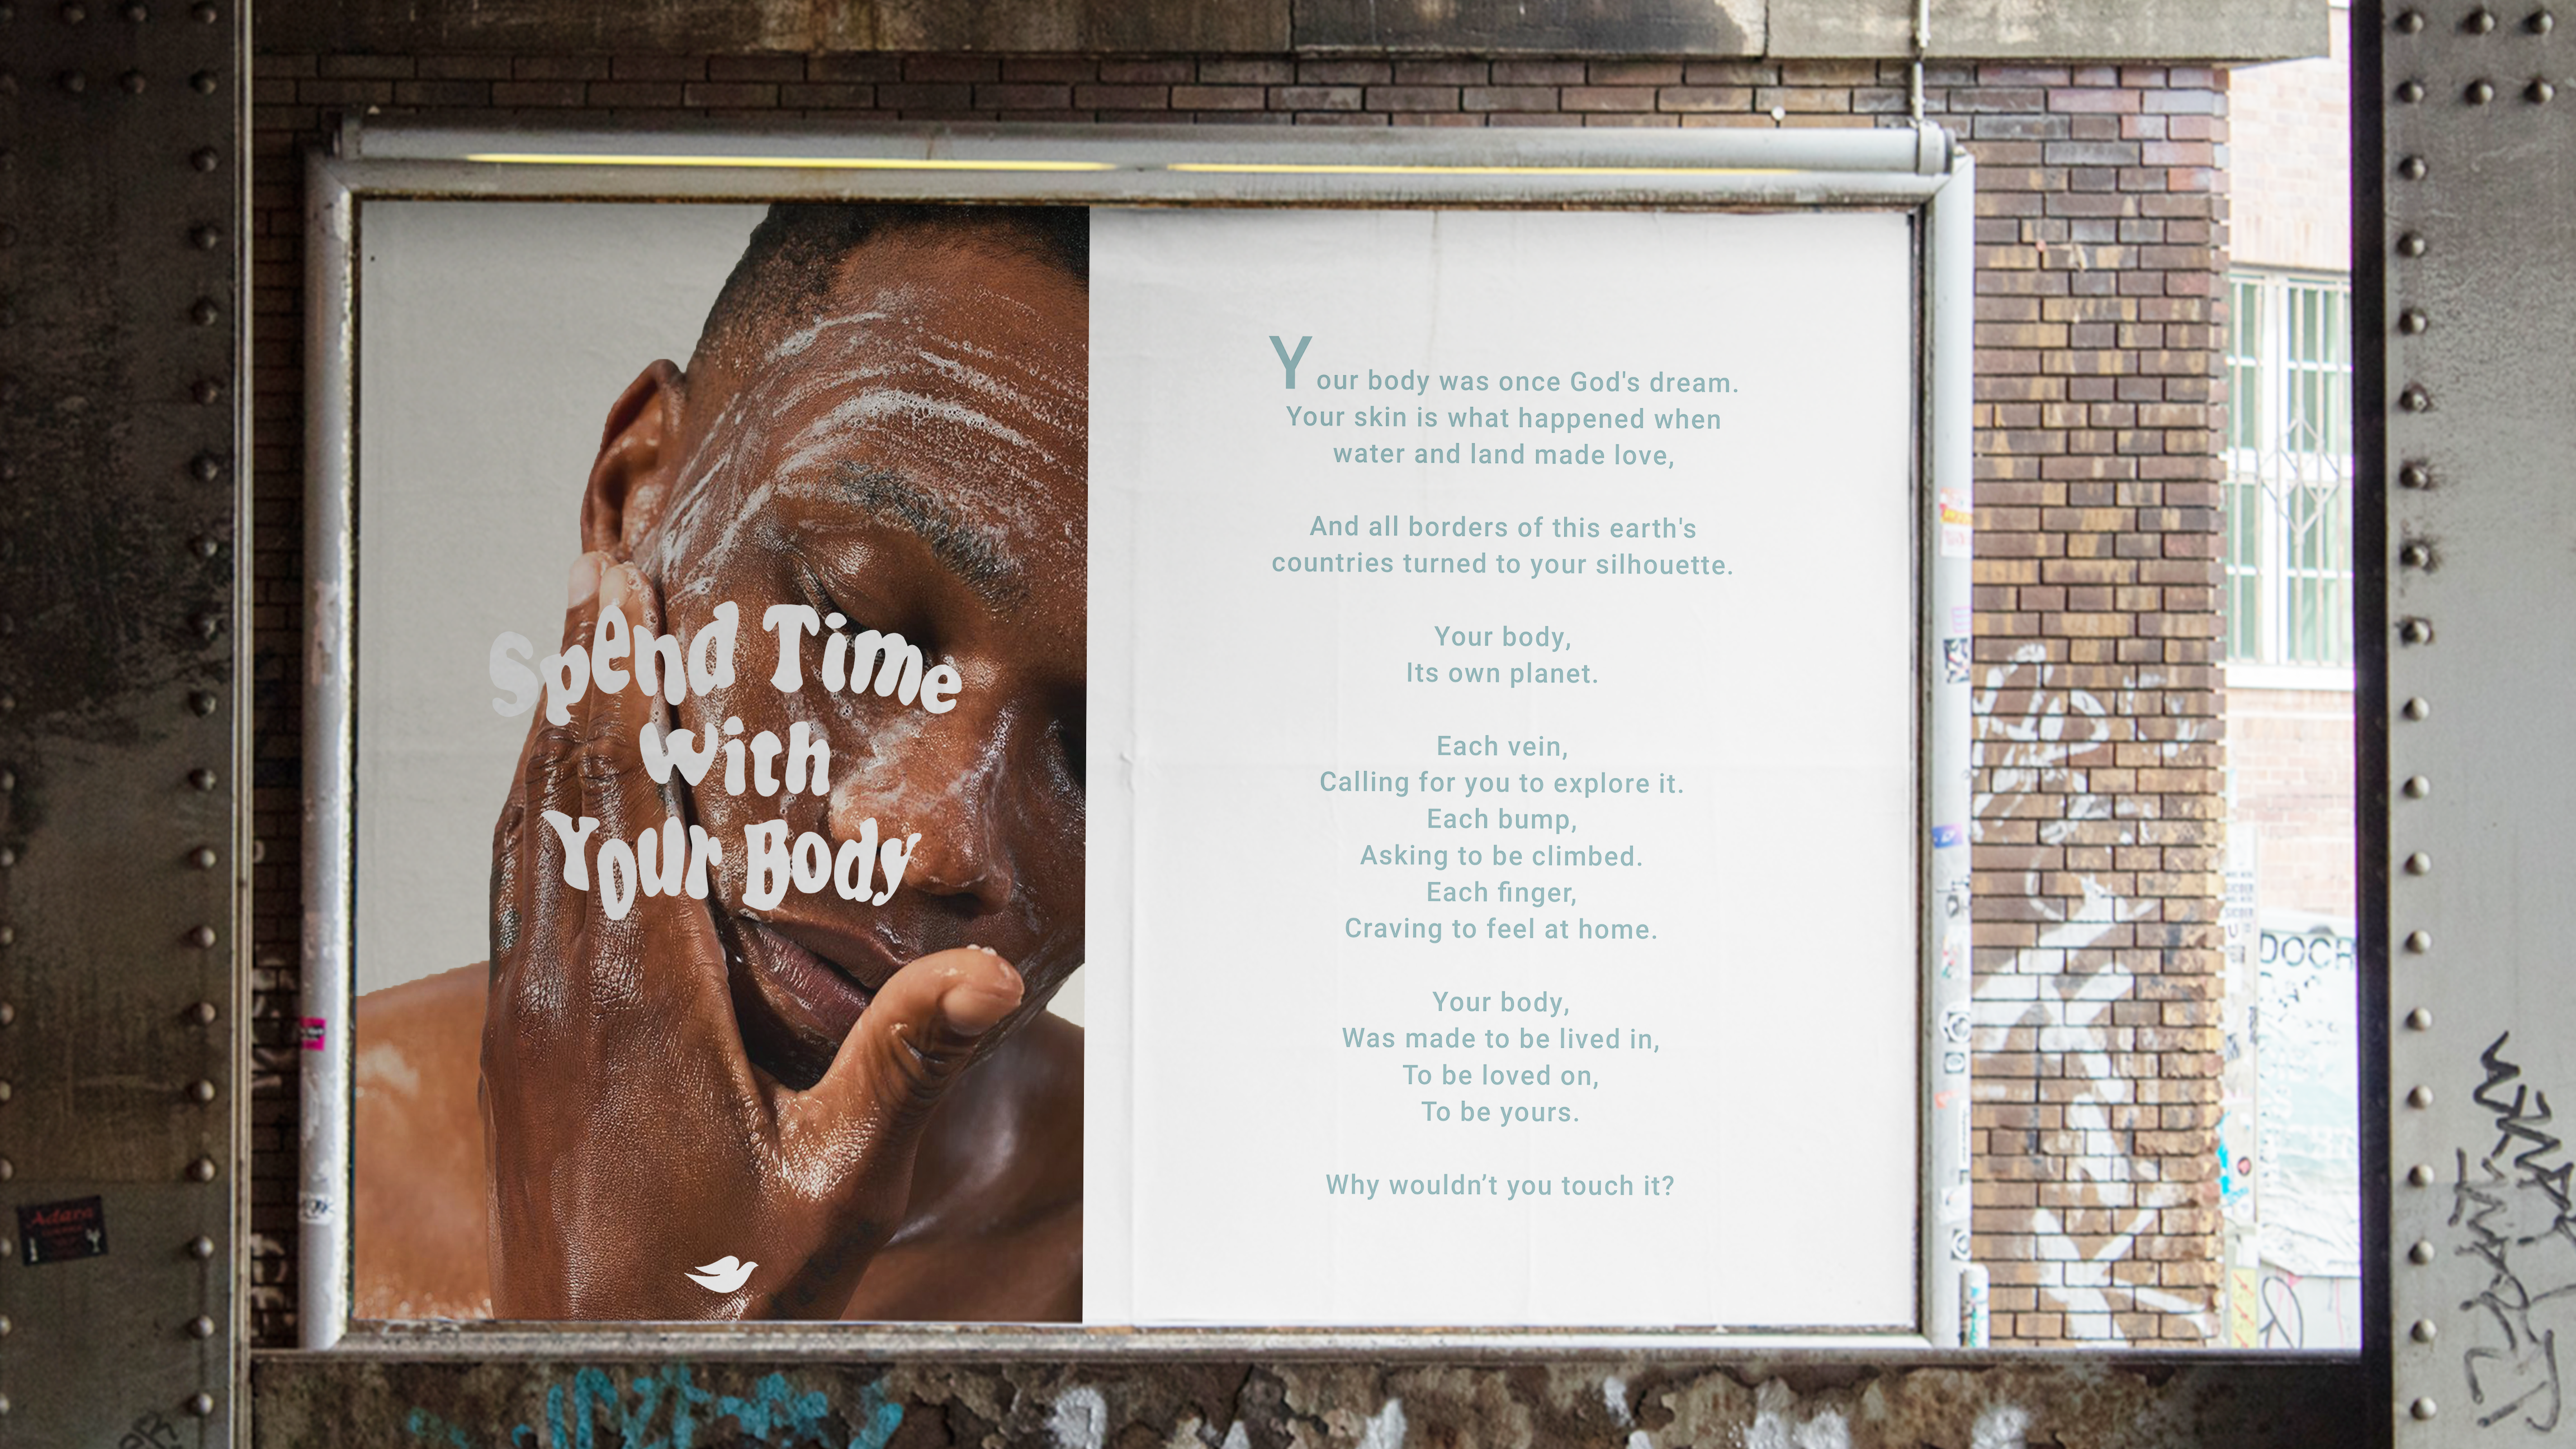 Spend Time
With
Your Body
Your body was once God's dream.
Your skin is what happened when
water and land made love,
And all borders of this earth's
countries turned to your silhouette.
Your body,
Its own planet.
Each vein,
Calling for you to explore it.
Each bump,
Asking to be climbed.
Each finger,
Craving to feel at home.
Your body,
Was made to be lived in,
To be loved on,
To be yours.
Why wouldn’t you touch it?
Adara
DOCH